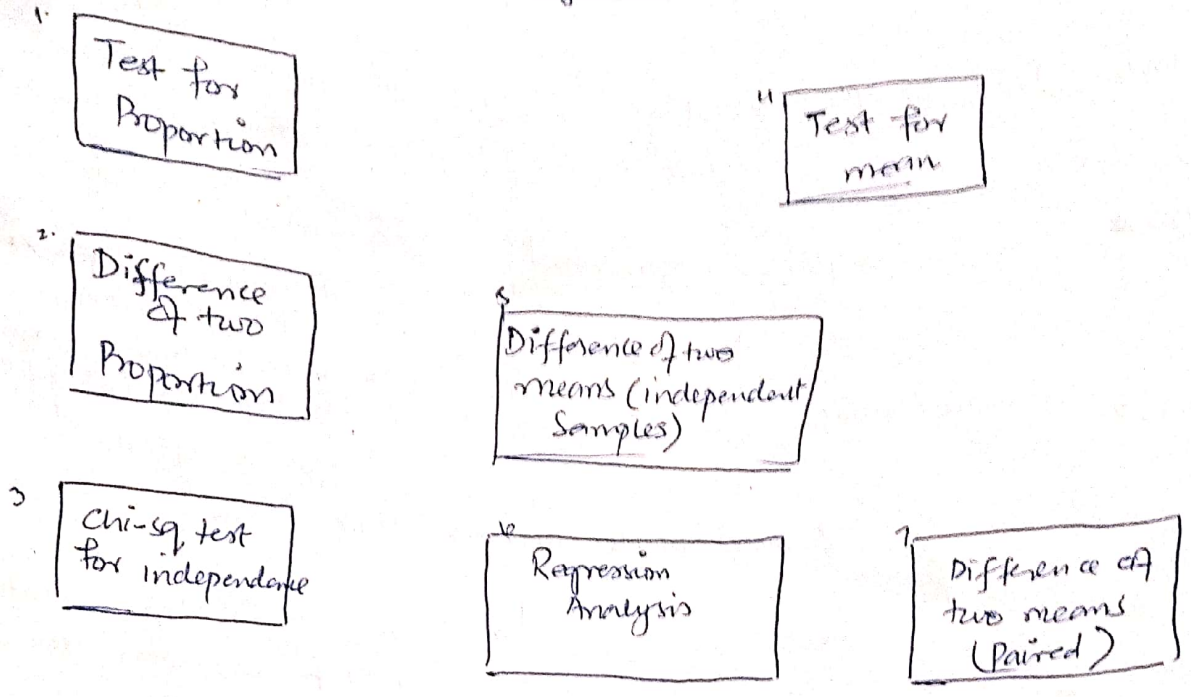 1.
Test for
Proportion
4
Test for
mean
2.
Difference
of two
Proportion
5
Difference of two
means (independent
Samples)
3
chi-sq test
for independence
6
Regression
Analysis
7
Difference of
two means
(Paired)